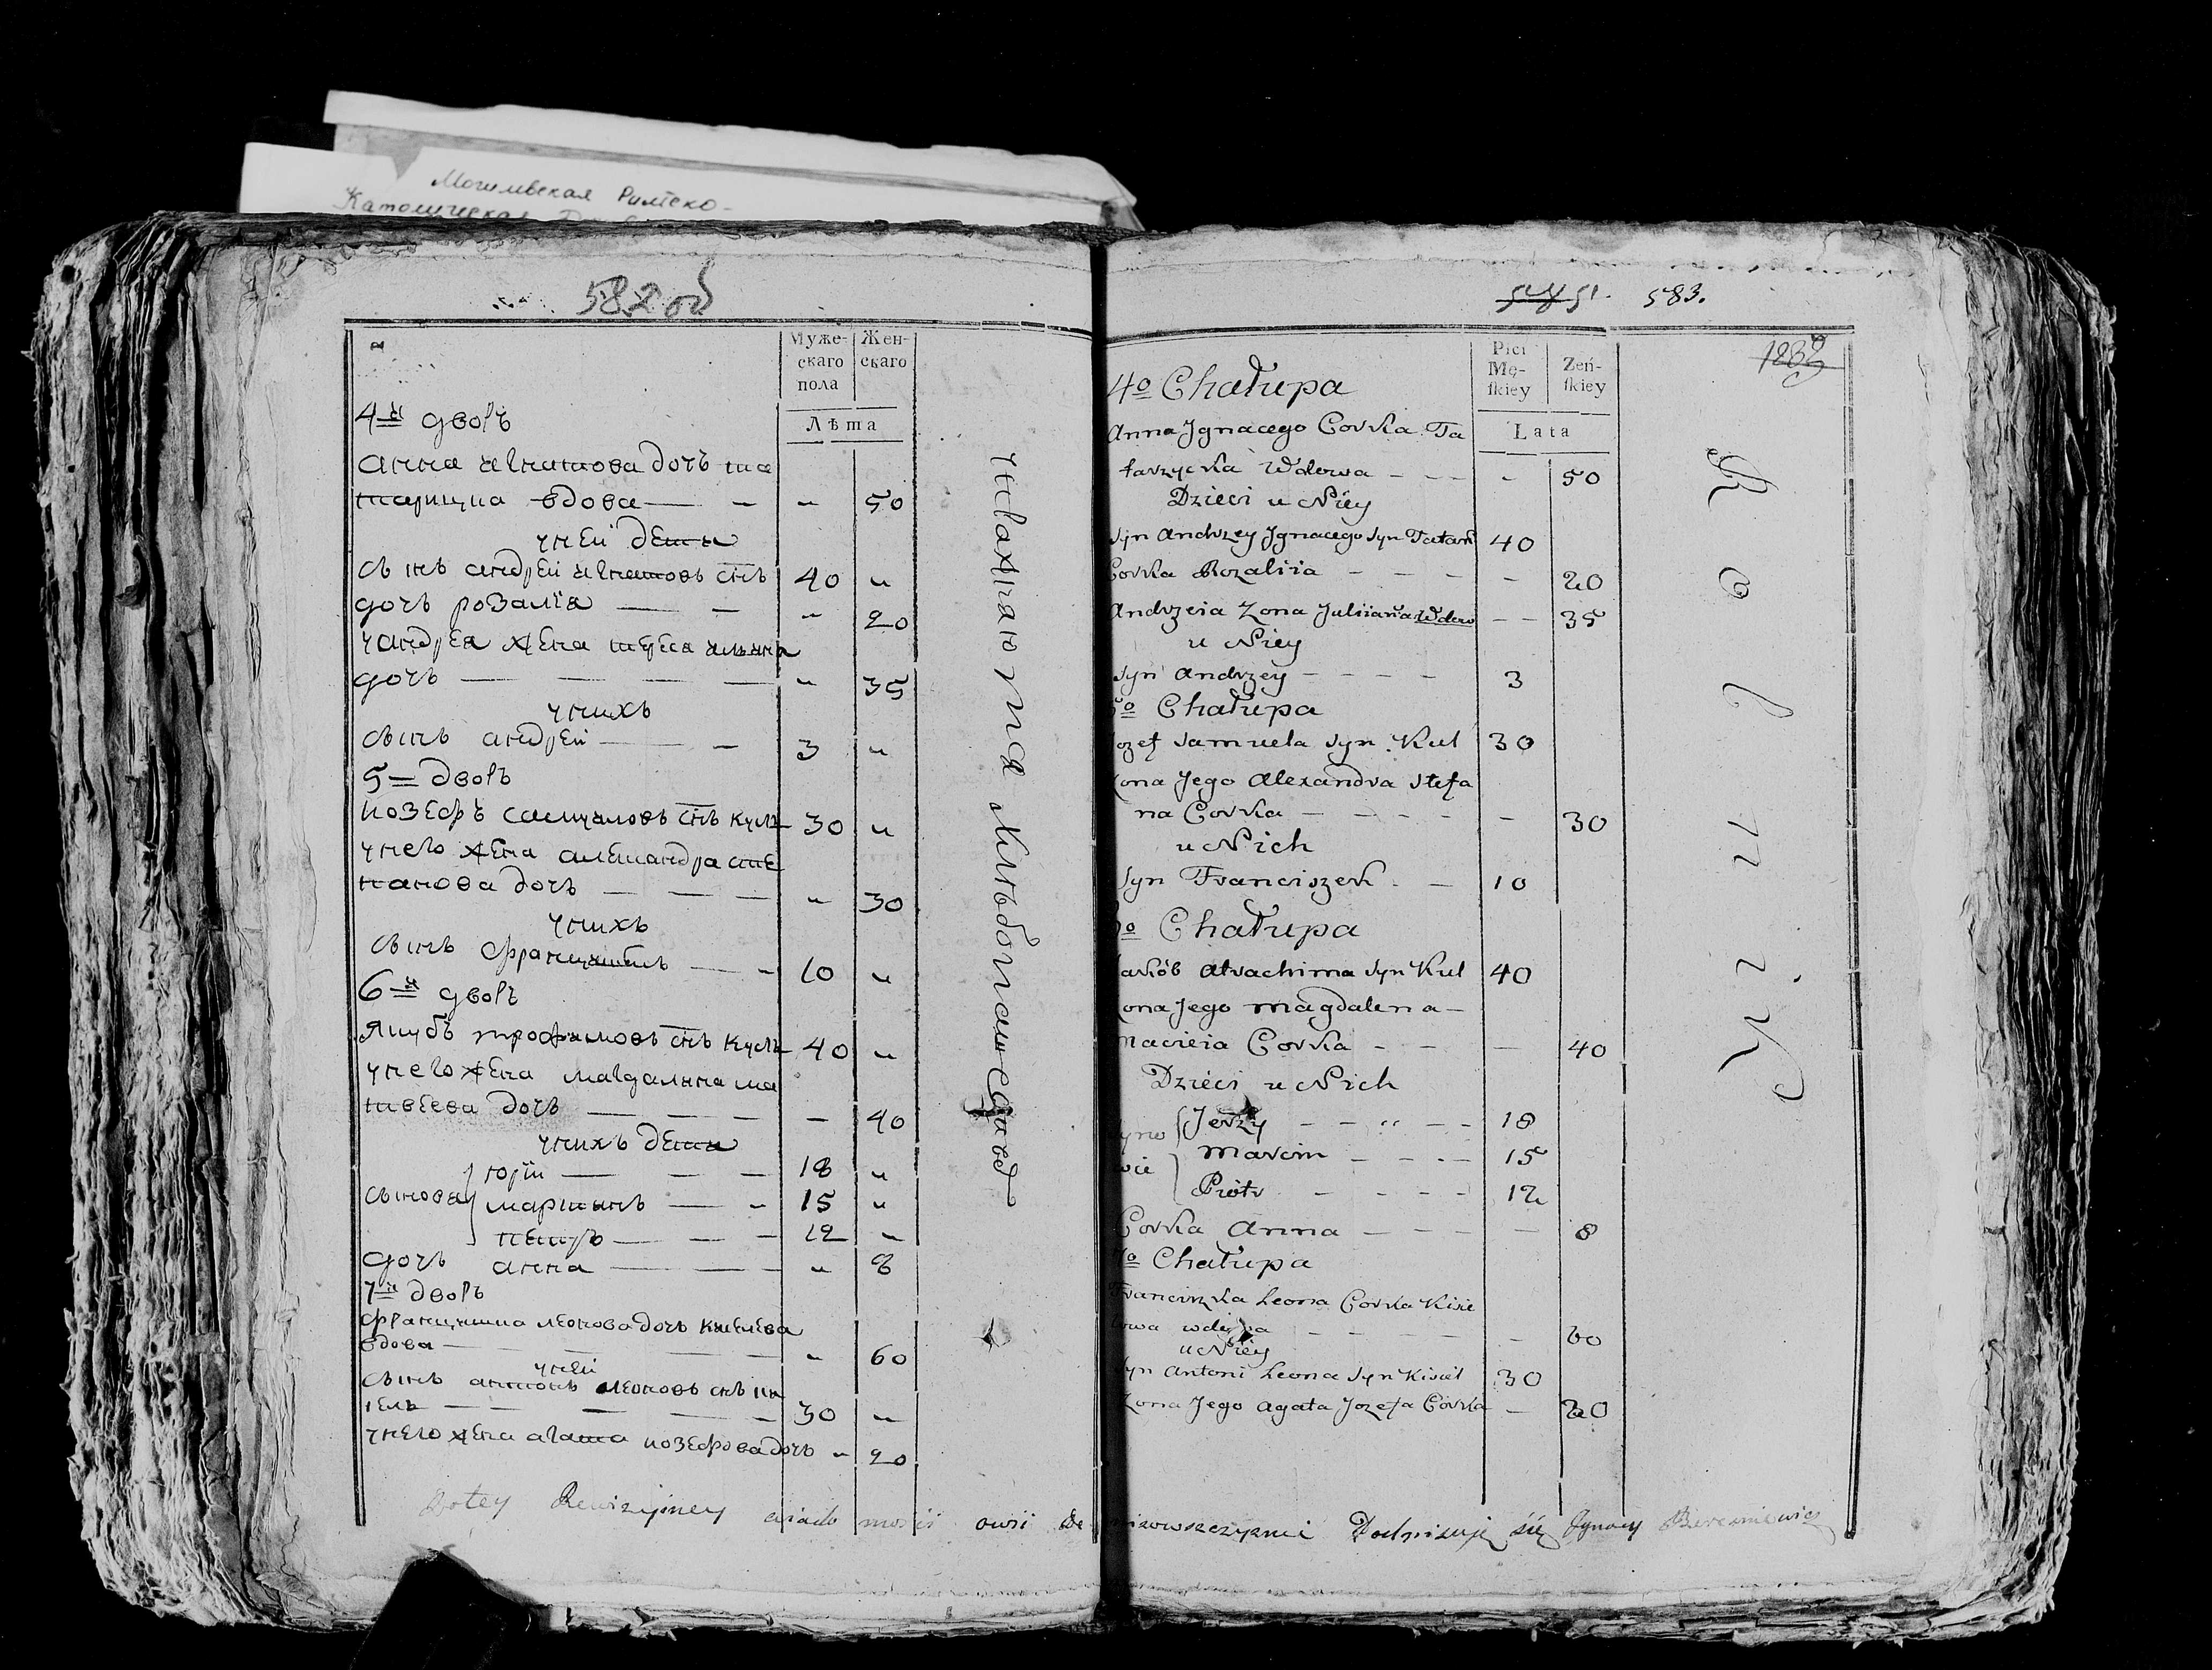 Могилевская Римско-
Католическая
582 об
Муже-
скаго
пола
Жен-
скаго
Лѣта
4й дворъ
Анна игнатова дочъ та
тарицка вдова — — " 50
у ней дети
сынъ андрей игнатовъ снъ 40 "
дочъ розалїя — — " 20
у андрея жена тереса ильина
дочъ — — — — " 35
у нихъ
сынъ андрей — — 3 "
5 дворъ
иозефъ самуиловъ снъ куль 30 "
у него жена алешандра сте
панова дочъ — — — " 30
у нихъ
сынъ францишекъ — — 10 "
6й дворъ
якубъ трофимовъ снъ куль 40 "
у него жена магдалина ма
твеева дочъ — — — — 40
у нихъ дети
сынова
юрїи — — — 18 "
мартинъ — — 15 "
петръ — — — 12 "
дочъ анна — — — " 8
7й дворъ
францишка леонова дочъ кисілева
вдова — — — " 60
у ней
сынъ антонъ леоновъ снъ ки
іель — — — — — 30 "
у него жена агата иозефова дочъ " 20
упражняются хлѣбопашесцомъ
5451. 583.
1232
Płci
Mę-
ſkiey
Żeń-
ſkiey
Lata
4o Chałupa
Anna Jgnacego Corka Ta
tarzycka Wdowa - - - - 50
Dzieci u Niey
Syn Andrzey Jgnacego Syn Tatar 40
Corka Rozaliia - - - - 20
Andrzeia Zona Juliianna Wdow - - 35
u Niey
Syn Andrzey - - - - 3
5o Chałupa
Jozef Samuela Syn Kul 30
Zona Jego Alexandra Stefa
na Corka - - - - - 30
u Nich
Syn Franciszek - - 10
6o Chałupa
Jakób Atrachima Syn Kul 40
Zona Jego Magdalena -
Macieia Corka - - - 40
Dzieci u Nich
Syno
wie
Jerzy - - - - - 18
Marcin - - - - 15
Piotr - - - - 12
Corka Anna - - - - - 8
7o Chałupa
Franciszka Leona Corka Kisie
lowa wdowa - - - - 60
u Niey
Syn Antoni Leona Syn Kisiel 30
Zona Jego Agata Jozefa Corka - 20
Rolnik
Do tey Rewizijney wiadomosci Podpisuję się Jgnacy